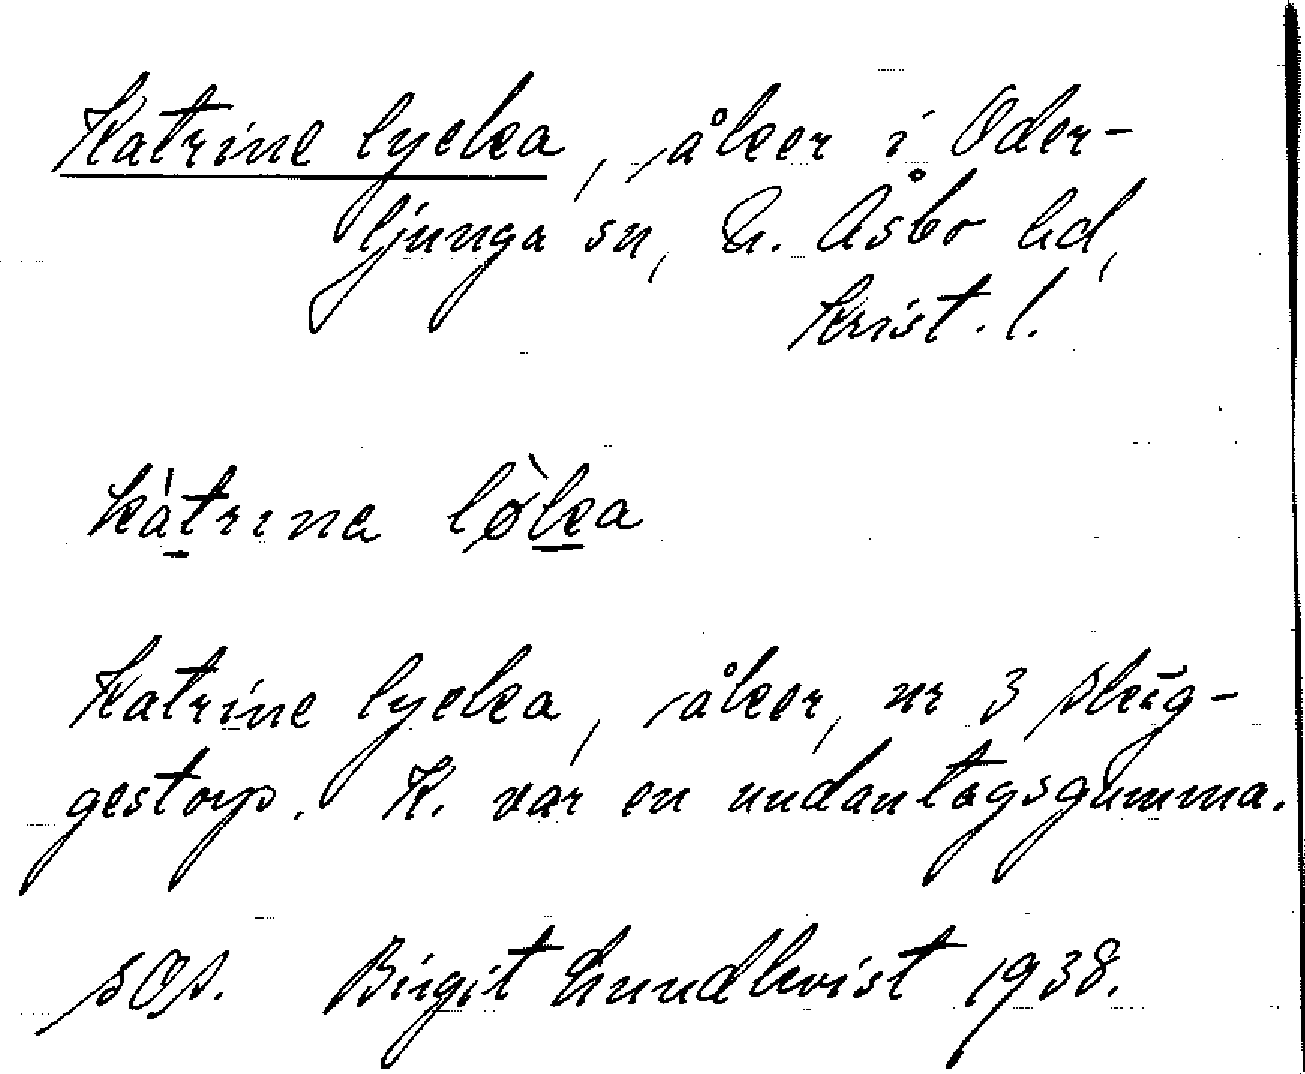 Katrine lycka, åker i Oder-
ljunga sn, N. Åsbo hd,
Krist. l.
kàtrina lø̀ka
Katrine lycka, åker, nr 3 Skäg-
gestorp. K. var en undantagsgumma.
SOA. Birgit Lundkvist 1938.